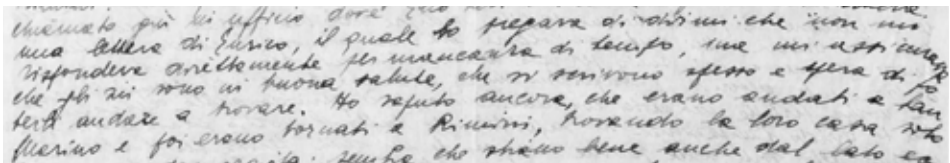 chiamato giù in ufficio dove
una lettera di Enrico, il quale lo pregava di dirmi che non mi
rispondeva direttamente per mancanza di tempo, ma mi assicurava
che gli zii sono in buona salute, che si scrivono spesso e spera di po
terli andare a trovare. Ho saputo ancora, che erano andati a San
Marino e poi erano tornati a Rimini, trovando la loro casa
sembra che stiano bene anche dal lato